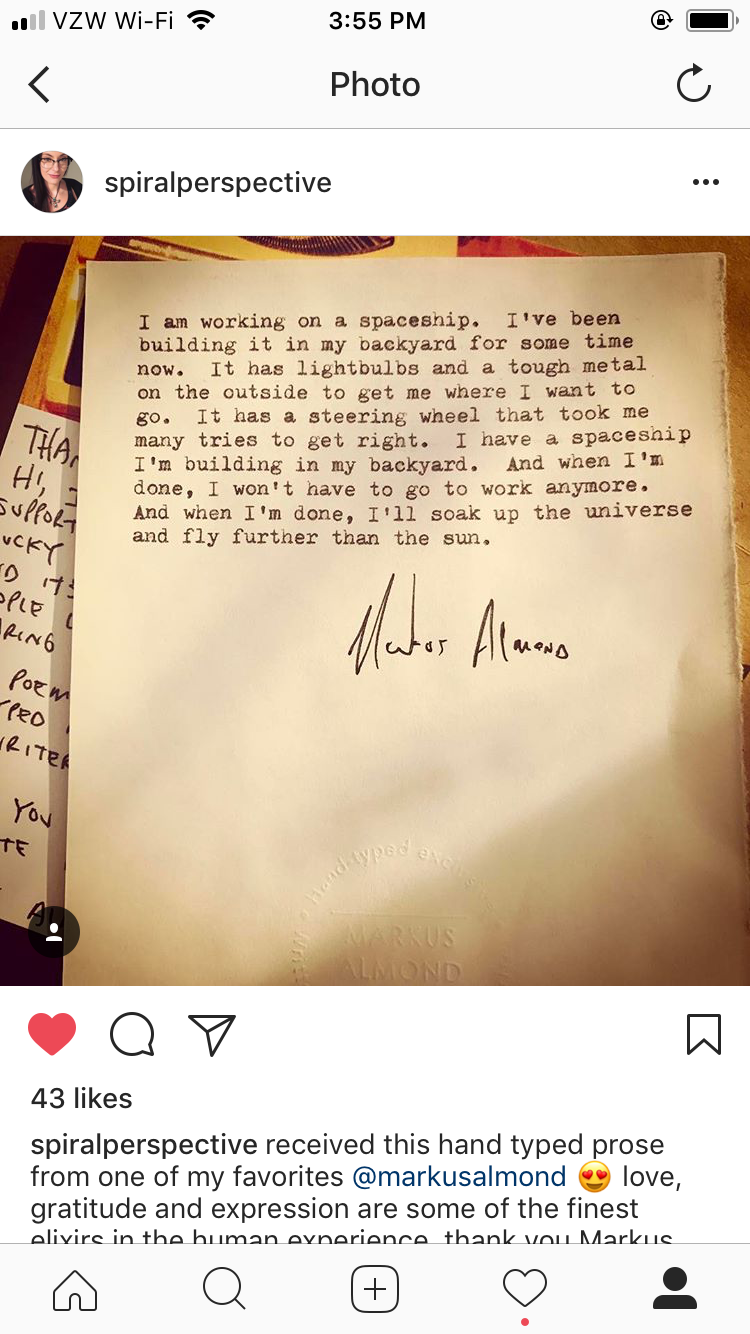 VZW Wi-Fi
3:55 PM
Photo
spiralperspective
I am working on a spaceship. I've been
building it in my backyard for some time
now. It has lightbulbs and a tough metal
on the outside to get me where I want to
go. It has a steering wheel that took me
many tries to get right. I have a spaceship
I'm building in my backyard. And when I'm
done, I won't have to go to work anymore.
And when I'm done, I'll soak up the universe
and fly further than the sun.
Markus Almond
THA
HI,
SUPPORT
UCKY
D IT'S
OPLE
RING
POEM
PED
RITER
YOU
TE
AL
Hand-typed
MARKUS
ALMOND
43 likes
spiralperspective received this hand typed prose
from one of my favorites @markusalmond 😍 love,
gratitude and expression are some of the finest
elixirs in the human experience, thank you Markus